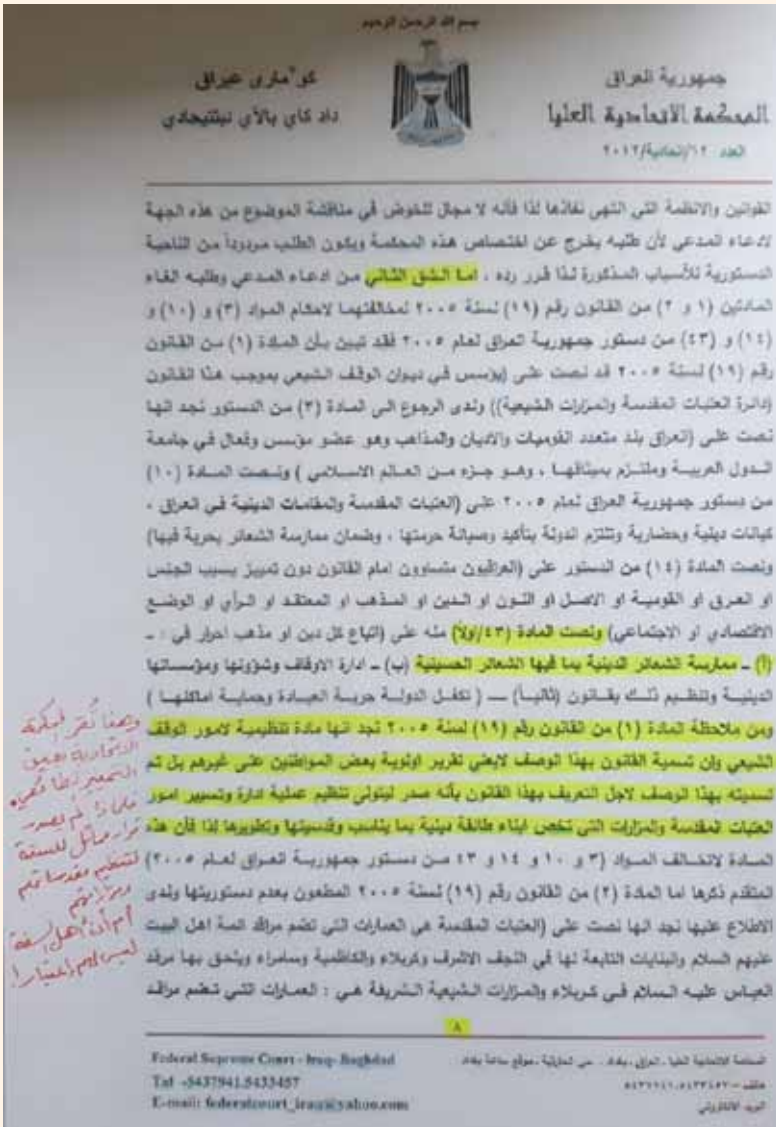 بسم الله الرحمن الرحيم
جمهورية العراق
المحكمة الاتحادية العليا
العدد ١٢/اتحادية/٢٠١٢
كۆماری عیراق
داد كاي بالآي
القوانين والانظمة التي انتهى نفاذها لذا فأنه لا مجال للخوض في مناقشة الموضوع من هذه الجهة
لادعاء المدعي لأن طلبه يخرج عن اختصاص هذه المحكمة ويكون الطلب مردوداً من الناحية
الدستورية للأسباب المذكورة لذا قرر رده . اما الشق الثاني من ادعاء المدعي وطلبه الغاء
المادتين (١ و ٢) من القانون رقم (١٩) لسنة ٢٠٠٥ لمخالفتهما لاحكام المواد (٣) و (١٠) و
(١٤) و (٤٣) من دستور جمهورية العراق لعام ٢٠٠٥ فقد تبين بأن المادة (١) من القانون
رقم (١٩) لسنة ٢٠٠٥ قد نصت على (يؤسس في ديوان الوقف الشيعي بموجب هذا القانون
(دائرة العتبات المقدسة والمزارات الشيعية)) ولدى الرجوع الى المادة (٣) من الدستور نجد انها
نصت على (العراق بلد متعدد القوميات والاديان والمذاهب وهو عضو مؤسس وفعال في جامعة
الدول العربية وملتزم بميثاقها ، وهو جزء من العالم الاسلامي ) ونصت المادة (١٠)
من دستور جمهورية العراق لعام ٢٠٠٥ على (العتبات المقدسة والمقامات الدينية في العراق ،
كيانات دينية وحضارية وتلتزم الدولة بتأكيد وصيانة حرمتها ، وضمان ممارسة الشعائر بحرية فيها)
ونصت المادة (١٤) من الدستور على (العراقيون متساوون امام القانون دون تمييز بسبب الجنس
او العرق او القومية او الاصل او اللون او الدين او المذهب او المعتقد او الرأي او الوضع
الاقتصادي او الاجتماعي) ونصت المادة (٤٣/اولاً) منه على (اتباع كل دين او مذهب احرار في : ـ
(أ) ـ ممارسة الشعائر الدينية بما فيها الشعائر الحسينية (ب) ـ ادارة الاوقاف وشؤونها ومؤسساتها
الدينية وتنظيم ذلك بقانون (ثانياً) ـــ ( تكفل الدولة حرية العبادة وحماية اماكنها )
ومن ملاحظة المادة (١) من القانون رقم (١٩) لسنة ٢٠٠٥ نجد انها مادة تنظيمية لامور الوقف
الشيعي وان تسمية القانون بهذا الوصف لايعني تقرير اولوية بعض المواطنين على غيرهم بل تم
تسميته بهذا الوصف لاجل التعريف بهذا القانون بأنه صدر ليتولى تنظيم عملية ادارة وتسيير امور
العتبات المقدسة والمزارات التي تخص ابناء طائفة دينية بما يناسب وقدسيتها وتطويرها لذا فأن هذه
المادة لاتخالف المواد (٣ و ١٠ و ١٤ و ٤٣ من دستور جمهورية العراق لعام ٢٠٠٥)
المتقدم ذكرها اما المادة (٢) من القانون رقم (١٩) لسنة ٢٠٠٥ المطعون بعدم دستوريتها ولدى
الاطلاع عليها نجد انها نصت على (العتبات المقدسة هي العمارات التي تضم مراقد ائمة اهل البيت
عليهم السلام والبنايات التابعة لها في النجف الاشرف وكربلاء والكاظمية وسامراء ويلحق بها مرقد
العباس عليه السلام في كربلاء والمزارات الشيعية الشريفة هي : العمارات التي تضم مراقد
وهنا تُقر
لم يصدر
قرار مماثل للسنة
لتنظيم مقدساتهم
ومزاراتهم
أم أن أهل السنة
ليس لهم إعتبار!
٨
Federal Supreme Court - Iraq- Baghdad
Tel -5437941.5433457
E-mail: federalcourt_iraq@yahoo.com
المحكمة الاتحادية العليا ـ العراق ـ بغداد ـ حي الحارثية ـ موقع ساعة بغداد
هاتف – ٥٤٣٧٩٤١،٥٤٣٣٤٥٧
البريد الالكتروني